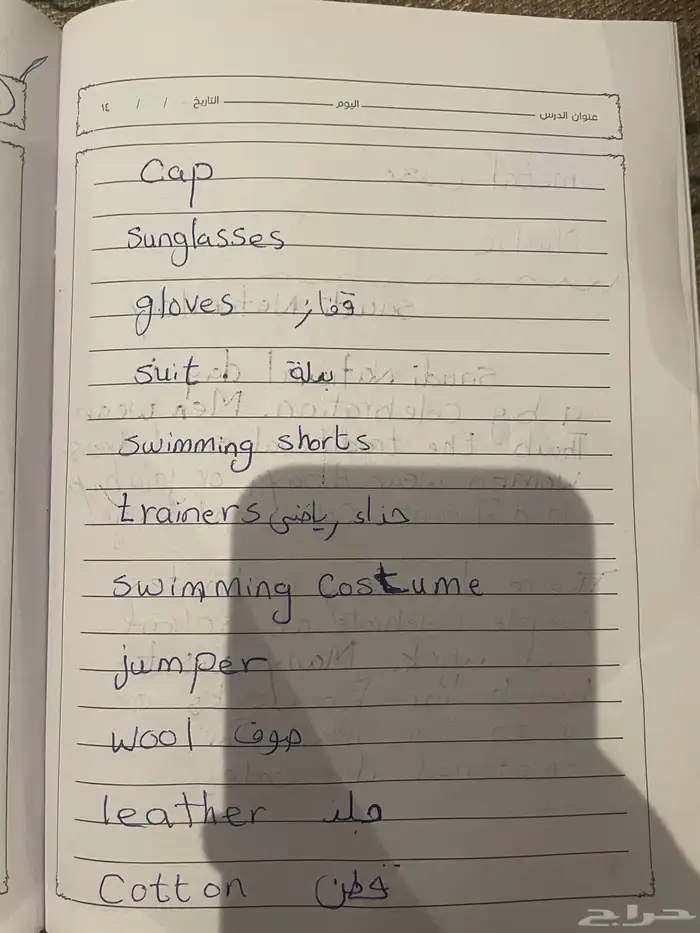 عنوان الدرس اليوم التاريخ / / ١٤
Cap
Sunglasses
gloves قفاز
suit بدلة
swimming shorts
trainers حذاء رياضي
swimming costume
jumper
wool صوف
leather جلد
Cotton قطن
حراج